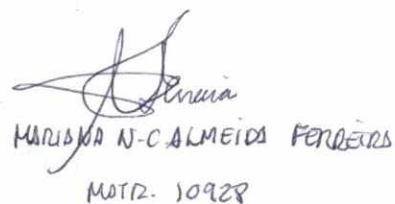 MARIANA N-C ALMEIDA FERREIRA
MATR. 10928